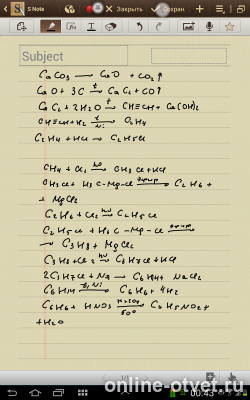 S Note
Закрыть
Сохран.
Subject
CaCO3 → CaO + CO2↑
CaO + 3C →t CaC2 + CO↑
CaC2 + 2H2O →t CH≡CH + Ca(OH)2
CH≡CH + H2 →t Ni C2H4
C2H4 + HCl → C2H5Cl
CH4 + Cl2 →hν CH3Cl + HCl
CH3Cl + H3C-Mg-Cl →эфир C2H6 +
+ MgCl2
C2H6 + Cl2 →hν C2H5Cl
C2H5Cl + H3C-Mg-Cl →эфир
→ C3H8 + MgCl2
C3H8 + Cl2 →hν C3H7Cl + HCl
2C3H7Cl + Na → C6H14 + NaCl2
C6H14 →t, Ni C6H6 + 4H2
C6H6 + HNO3 →H2SO4 50° C6H5NO2 +
+ H2O
00:43
online-otvet.ru